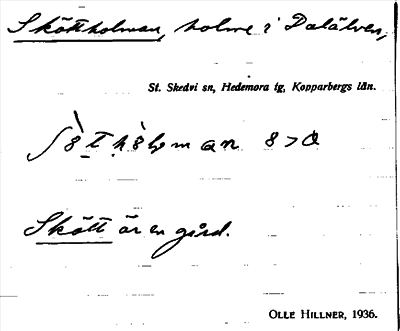 Sköttholman, holme i Dalälven,
St. Skedvi sn, Hedemora tg, Kopparbergs län.
Skött är en gård.
OLLE HILLNER, 1936.